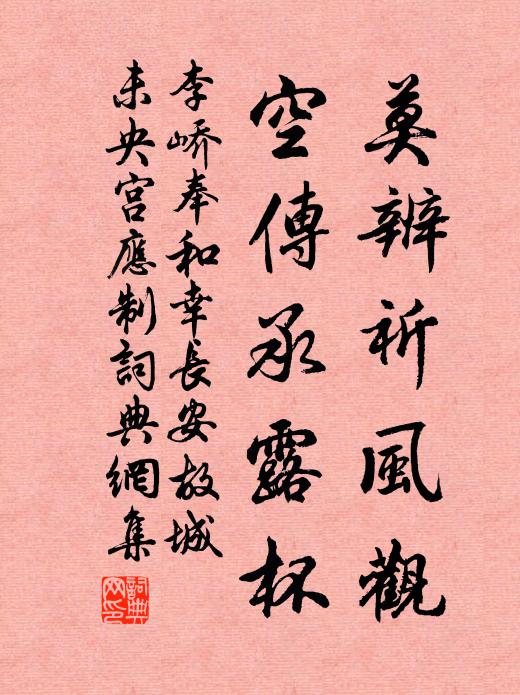 莫辨祈風觀
空傳承露杯
李嶠奉和幸長安故城
未央宮應制詞典網集
詞典
网印